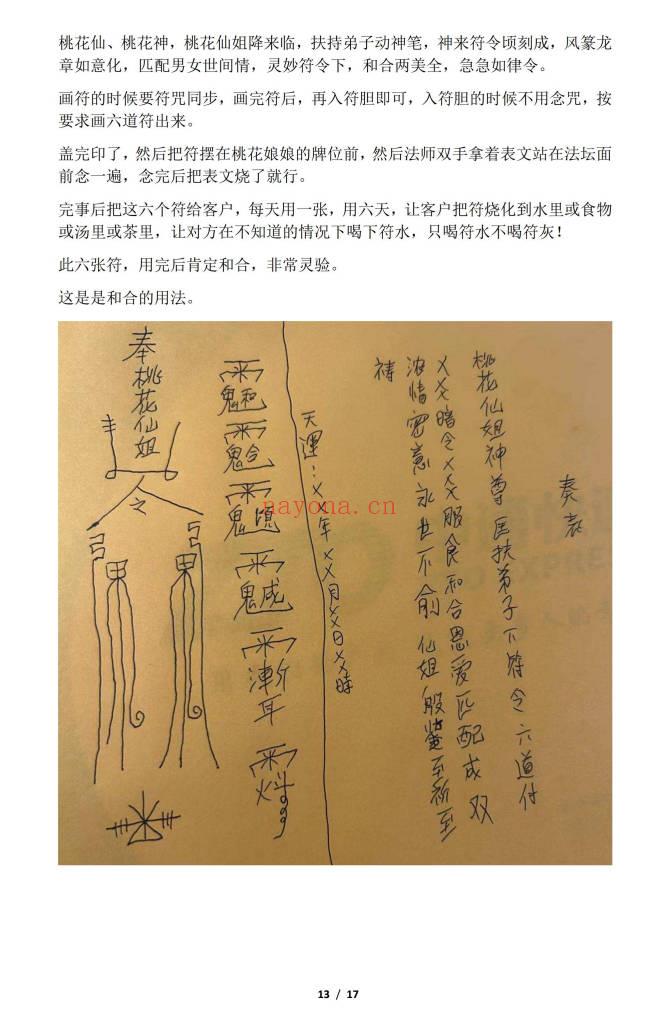 桃花仙、桃花神，桃花仙姐降来临，扶持弟子动神笔，神来符令顷刻成，风篆龙
章如意化，匹配男女世间情，灵妙符令下，和合两美全，急急如律令。
画符的时候要符咒同步，画完符后，再入符胆即可，入符胆的时候不用念咒，按
要求画六道符出来。
盖完印了，然后把符摆在桃花娘娘的牌位前，然后法师双手拿着表文站在法坛面
前念一遍，念完后把表文烧了就行。
完事后把这六个符给客户，每天用一张，用六天，让客户把符烧化到水里或食物
或汤里或茶里，让对方在不知道的情况下喝下符水，只喝符水不喝符灰！
此六张符，用完后肯定和合，非常灵验。
这是是和合的用法。
奏表
桃花仙姐神尊匡扶弟子下符令六道付
XXX暗令XXX服食和合恩爱匹配成双
浓情密意永世不俞仙姐殷鉴至祈至
祷
天運：XX年XX月XX日XX時
奉桃花仙姐
nayona.cn
13 / 17